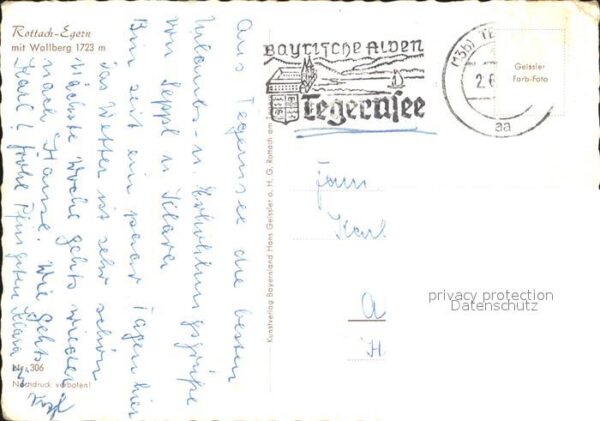 Rottach-Egern
mit Wallberg 1723 m
Aus Tegernsee die besten
Urlaubs- u. Erholungsgrüße
von Seppl u. Klara
Bin seit ein paar Tagen hier
das Wetter ist sehr schön
Nächste Woche gehts wieder
nach Hause. Wie gehts
Karl? frohe Pfingsten Klara
Nr. 306
Nachdruck verboten!
Kunstverlag Bayernland Hans Geissler o. H. G. Rottach am
Bayrische Alpen
Tegernsee
(13b) TE
2.6
aa
Geissler
Farb-Foto
Karl
A
H
privacy protection
Datenschutz